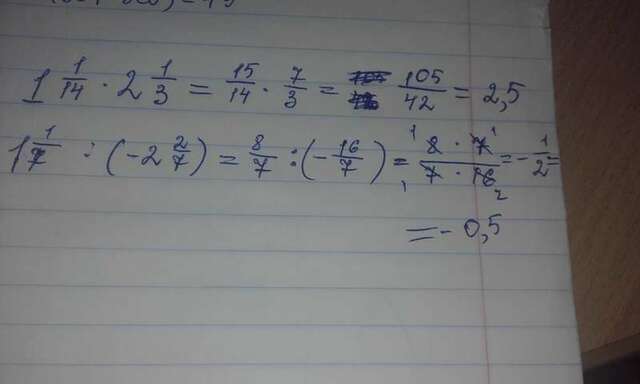 1 1/14 · 2 1/3 = 15/14 · 7/3 = 105/42 = 2,5
1 1/7 : (-2 2/7) = 8/7 : (-16/7) = 8 · 7/7 · 16 = -1/2 =
= - 0,5